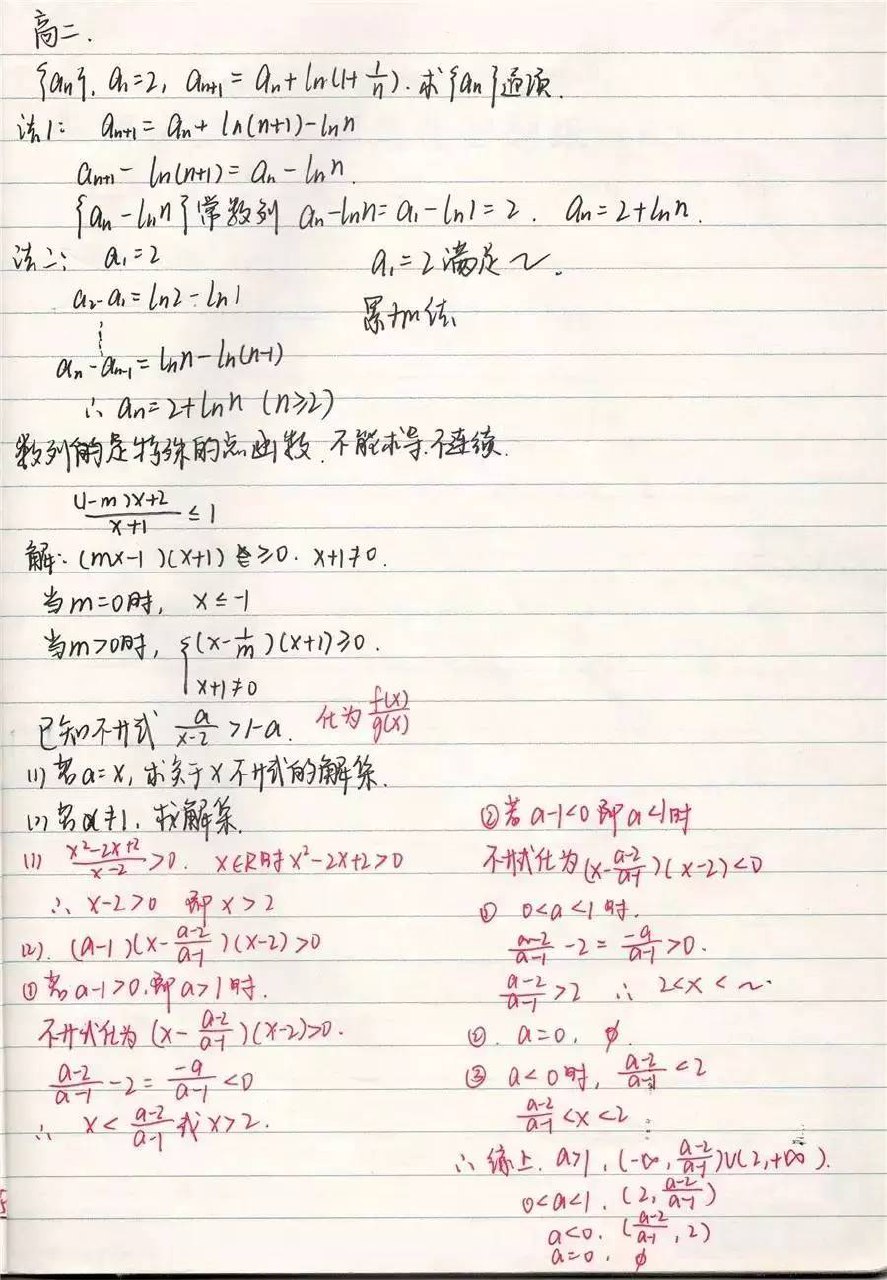 高二.
{an}, a₁=2, an+1 = an + ln(1+1/n). 求{an}通项.
法1: an+1 = an + ln(n+1) - ln n
an+1 - ln(n+1) = an - ln n.
{an - ln n}常数列 an - ln n = a₁ - ln1 = 2. an = 2 + ln n.
法二: a₁ = 2
a₁ = 2 满足~.
a₂ - a₁ = ln2 - ln1
累加法
⋮
an - an-1 = ln n - ln(n-1)
∴ an = 2 + ln n (n≥2)
数列的是特殊的点函数. 不能求导. 不连续.
((1-m)x+2)/(x+1) ≤ 1
解: (mx-1)(x+1) ≥ 0. x+1≠0.
当m=0时, x ≤ -1
当m>0时, { (x-1/m)(x+1) ≥ 0.
x+1≠0
已知不等式 a/(x-2) > 1-a. 化为 f(x)/g(x)
(1) 若a=x, 求关于x不等式的解集.
(2) 若a≠1, 求解集.
(1) (x²-2x+2)/(x-2) > 0. x∈R时 x²-2x+2>0
∴ x-2>0 即 x>2
(2). (a-1)(x-(a-2)/(a-1))(x-2)>0
① 若a-1>0, 即a>1时.
不等式化为 (x-(a-2)/(a-1))(x-2)>0.
(a-2)/(a-1) - 2 = -a/(a-1) < 0
∴ x < (a-2)/(a-1) 或 x>2.
② 若a-1<0 即a<1时
不等式化为 (x-(a-2)/(a-1))(x-2)<0
① 0<a<1时.
(a-2)/(a-1) - 2 = -a/(a-1) > 0.
(a-2)/(a-1) > 2 ∴ 2<x<~.
②. a=0, ∅.
③ a<0时, (a-2)/(a-1) < 2
(a-2)/(a-1) < x < 2
∴ 综上. a>1, (-∞, (a-2)/(a-1))∪(2,+∞).
0<a<1, (2, (a-2)/(a-1))
a<0. ((a-2)/(a-1), 2)
a=0, ∅